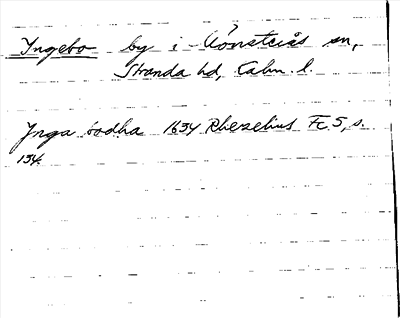 Yngebo by i Mönsterås sn,
Stranda hd, Kalm. l.
Ynga bodha 1634 Rhezelius Fc 5, s.
134.